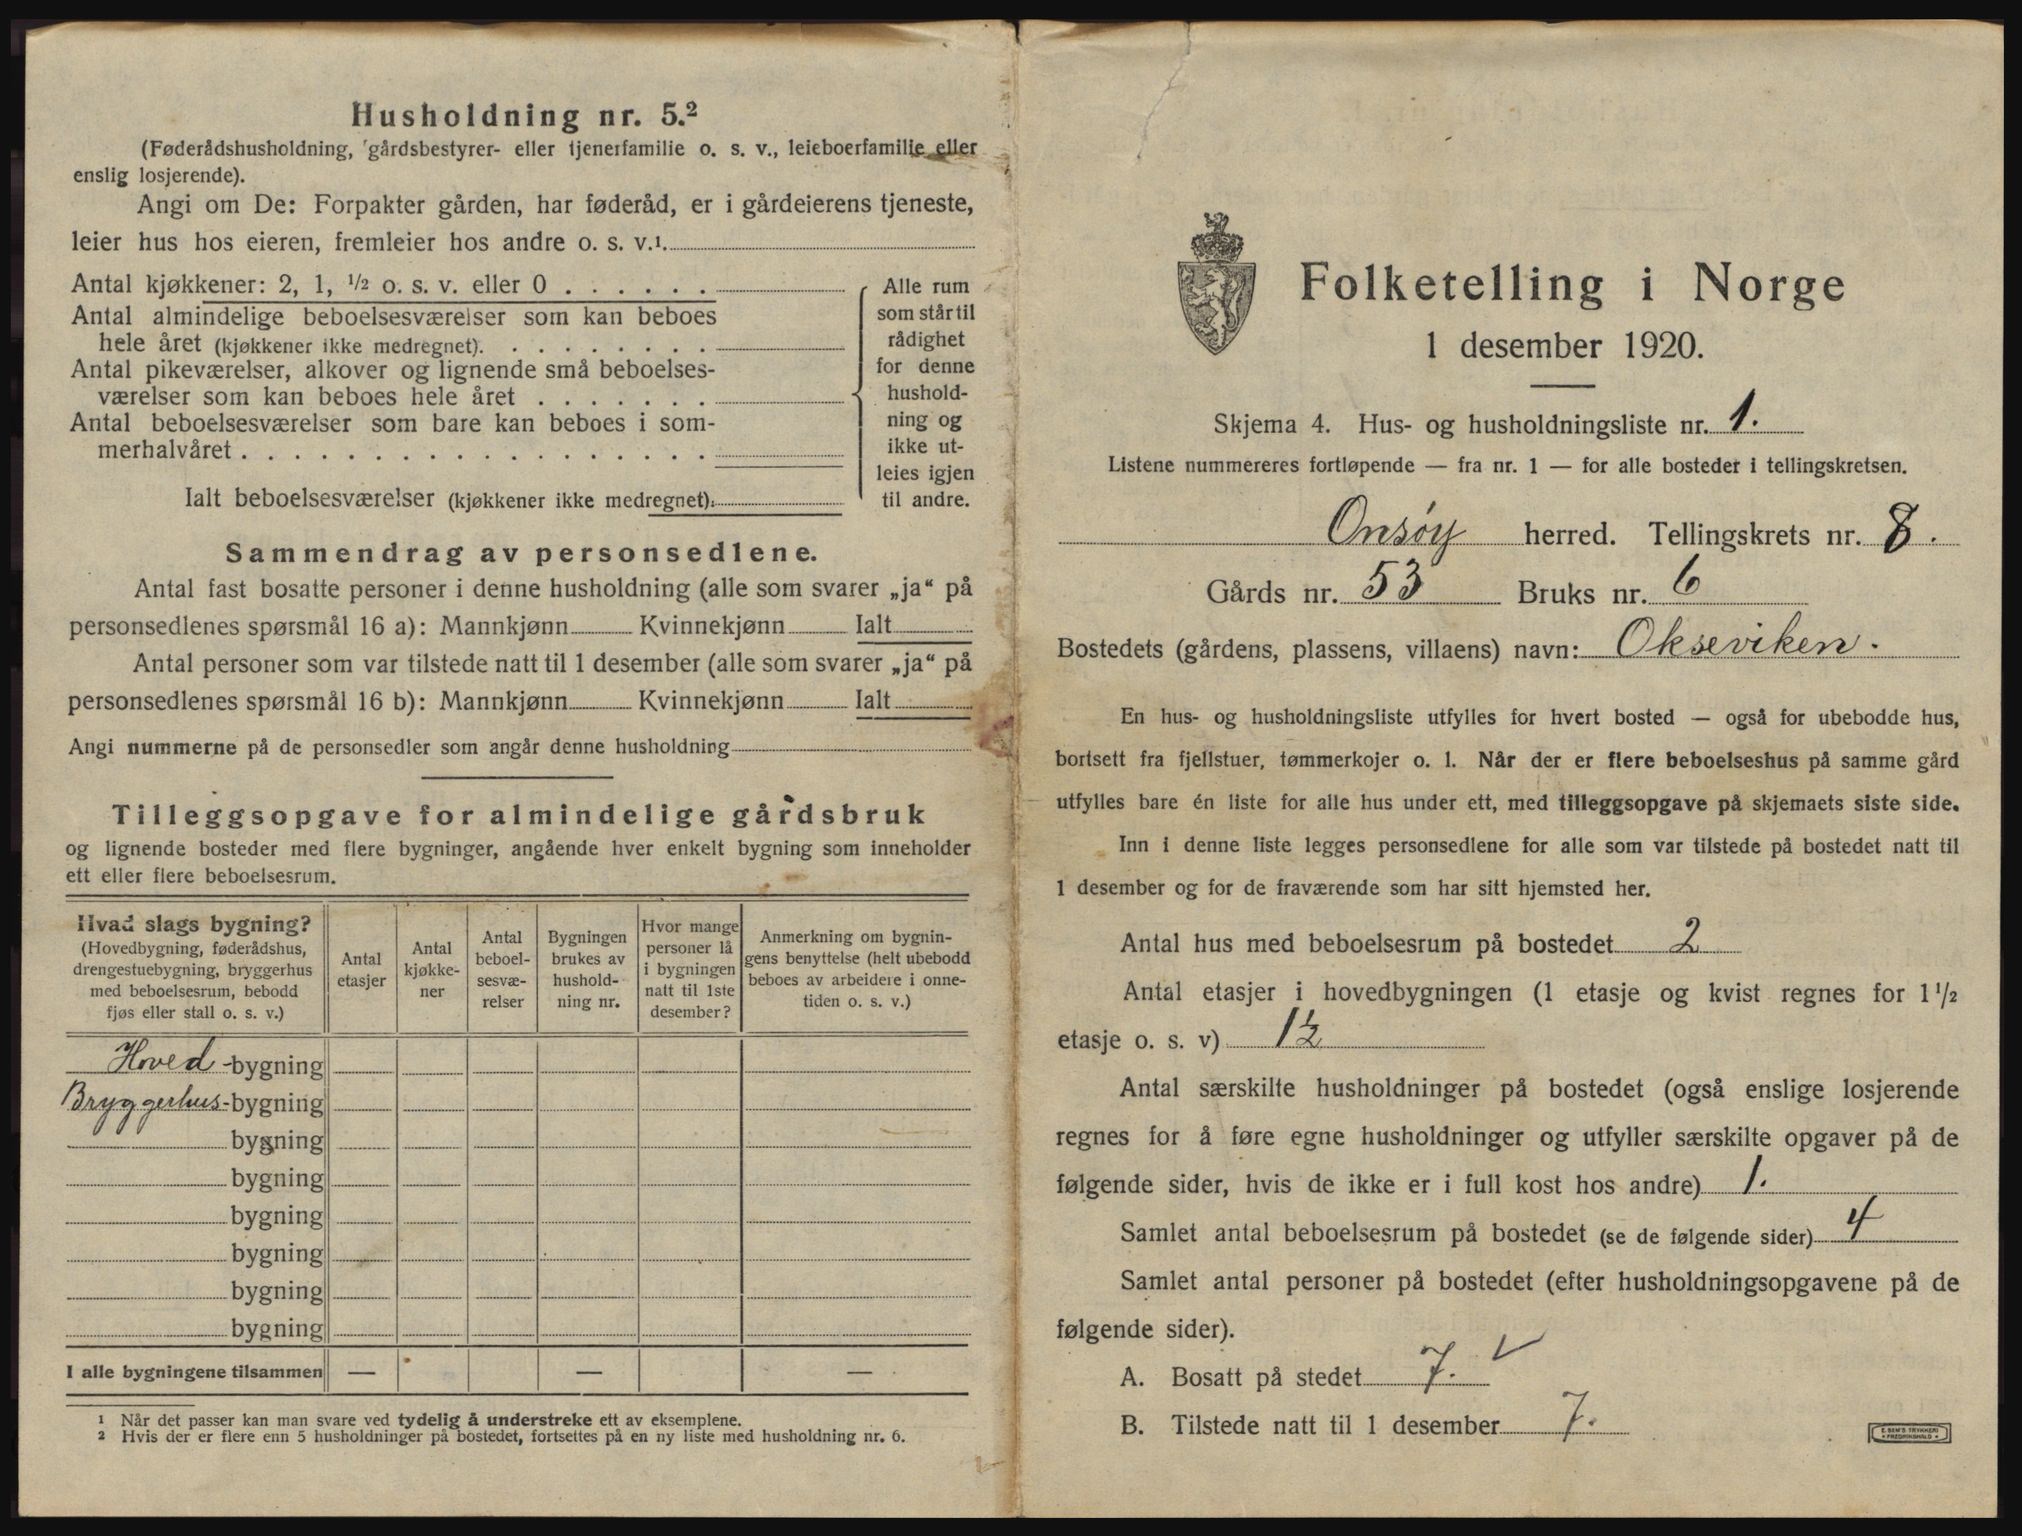 Husholdning nr. 5.²
(Føderådshusholdning, gårdsbestyrer- eller tjenerfamilie o. s. v., leieboerfamilie eller
enslig losjerende).
Angi om De: Forpakter gården, har føderåd, er i gårdeierens tjeneste,
leier hus hos eieren, fremleier hos andre o. s. v.¹
Antal kjøkkener: 2, 1, ½ o. s. v. eller 0 . . . . . .
Antal almindelige beboelsesværelser som kan beboes
hele året (kjøkkener ikke medregnet). . . . . . . . .
Antal pikeværelser, alkover og lignende små beboelses-
værelser som kan beboes hele året . . . . . . .
Antal beboelsesværelser som bare kan beboes i som-
merhalvåret . . . . . . . . . . . . . . . . . .
Ialt beboelsesværelser (kjøkkener ikke medregnet):
Alle rum
som står til
rådighet
for denne
hushold-
ning og
ikke ut-
leies igjen
til andre.
Sammendrag av personsedlene.
Antal fast bosatte personer i denne husholdning (alle som svarer „ja“ på
personsedlenes spørsmål 16 a): Mannkjønn Kvinnekjønn Ialt
Antal personer som var tilstede natt til 1 desember (alle som svarer „ja“ på
personsedlenes spørsmål 16 b): Mannkjønn Kvinnekjønn Ialt
Angi nummerne på de personsedler som angår denne husholdning
Tilleggsopgave for almindelige gårdsbruk
og lignende bosteder med flere bygninger, angående hver enkelt bygning som inneholder
ett eller flere beboelsesrum.
Hvad slags bygning?
(Hovedbygning, føderådshus,
drengestuebygning, bryggerhus
med beboelsesrum, bebodd
fjøs eller stall o. s. v.)
Antal
etasjer
Antal
kjøkke-
ner
Antal
beboel-
sesvæ-
relser
Bygningen
brukes av
hushold-
ning nr.
Hvor mange
personer lå
i bygningen
natt til 1ste
desember?
Anmerkning om bygnin-
gens benyttelse (helt ubebodd
beboes av arbeidere i onne-
tiden o. s. v.)
Hoved-bygning
Bryggerhus-bygning
bygning
bygning
bygning
bygning
bygning
bygning
I alle bygningene tilsammen — — —
¹ Når det passer kan man svare ved tydelig å understreke ett av eksemplene.
² Hvis der er flere enn 5 husholdninger på bostedet, fortsettes på en ny liste med husholdning nr. 6.
Folketelling i Norge
1 desember 1920.
Skjema 4. Hus- og husholdningsliste nr. 1.
Listene nummereres fortløpende — fra nr. 1 — for alle bosteder i tellingskretsen.
Onsøy herred. Tellingskrets nr. 8.
Gårds nr. 53 Bruks nr. 6
Bostedets (gårdens, plassens, villaens) navn: Okseviken.
En hus- og husholdningsliste utfylles for hvert bosted — også for ubebodde hus,
bortsett fra fjellstuer, tømmerkojer o. l. Når der er flere beboelseshus på samme gård
utfylles bare én liste for alle hus under ett, med tilleggsopgave på skjemaets siste side.
Inn i denne liste legges personsedlene for alle som var tilstede på bostedet natt til
1 desember og for de fraværende som har sitt hjemsted her.
Antal hus med beboelsesrum på bostedet 2
Antal etasjer i hovedbygningen (1 etasje og kvist regnes for 1½
etasje o. s. v) 1½
Antal særskilte husholdninger på bostedet (også enslige losjerende
regnes for å føre egne husholdninger og utfyller særskilte opgaver på de
følgende sider, hvis de ikke er i full kost hos andre) 1.
Samlet antal beboelsesrum på bostedet (se de følgende sider) 4
Samlet antal personer på bostedet (efter husholdningsopgavene på de
følgende sider).
A. Bosatt på stedet 7. ✓
B. Tilstede natt til 1 desember 7.
E. SEM'S TRYKKERI
• FREDRIKSHALD •